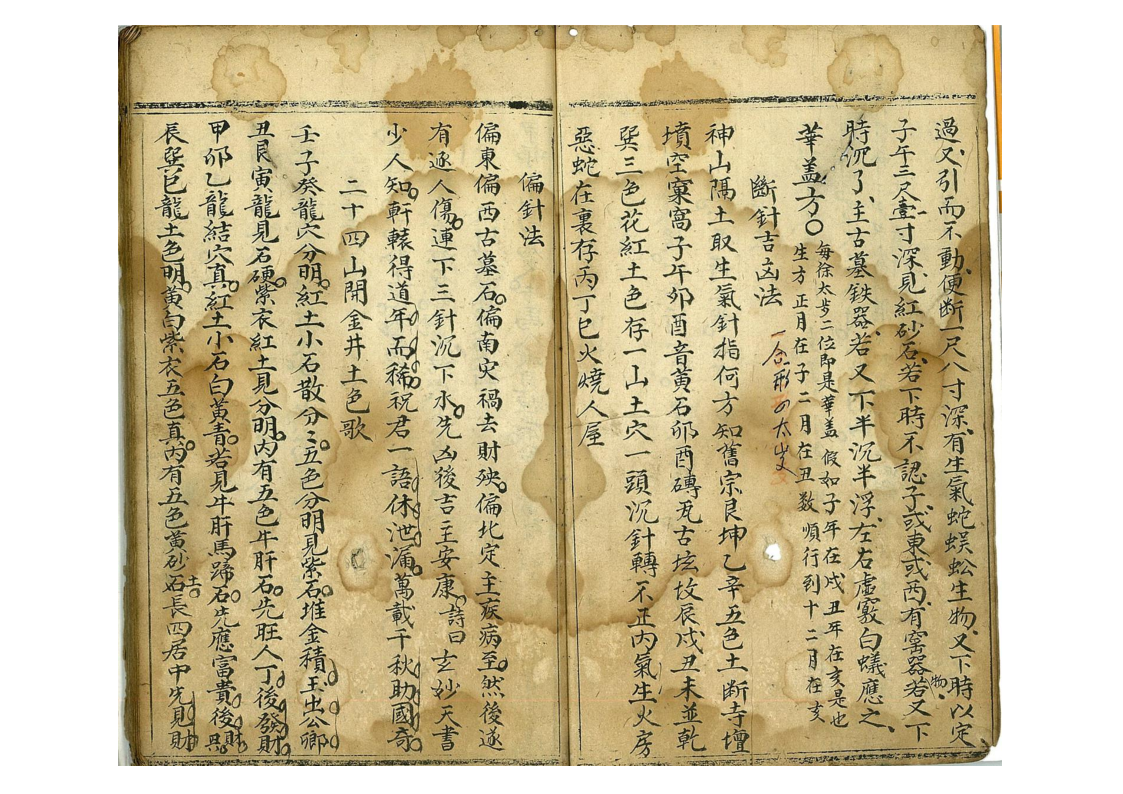 過又引而不動便断一尺八寸深有生氣蛇蜈蚣生物又下時以定
子午三尺壹寸深見紅砂石若下時不認子或東或西有窰器物若又下
時況了主古墓鉄器若又下半沉半浮左右虛竅白蟻應之
華盖方〇
每徐太岁二位即是華盖假如子年在戌丑年在亥是也
生方正月在子二月在丑数順行到十二月在亥
斷針吉凶法
神山隅土取生氣針指何方知舊宗艮坤乙辛五色土断寺壇
墳空窠窩子午夘酉音黄石夘酉磚瓦古坟故辰戌丑未並乾
巽三色花紅土色存一山土穴一頭沉針轉不正內氣生火房
惡蛇在裏存丙丁巳火燒人屋
偏針法
偏東偏西古墓石偏南灾禍去財殃偏北定主疾病至然後遂
有逐人傷連下三針沉下水先凶後吉主安康詩曰玄妙天書
少人知軒轅得道年而稀祝君一語休泄漏萬載千秋助國奇
二十四山開金井土色歌
壬子癸龍穴分明紅土小石散分〻五色分明見紫石堆金積玉出公卿
丑艮寅龍見石硬紫衣紅土見分明內有五色牛肝石先旺人丁後發財
甲夘乙龍結穴真紅土小石白黄青若見牛肝馬蹄石先應富貴後財興
辰巽巳龍土色明黄白紫衣五色真內有五色黄砂土石長四居中先見財